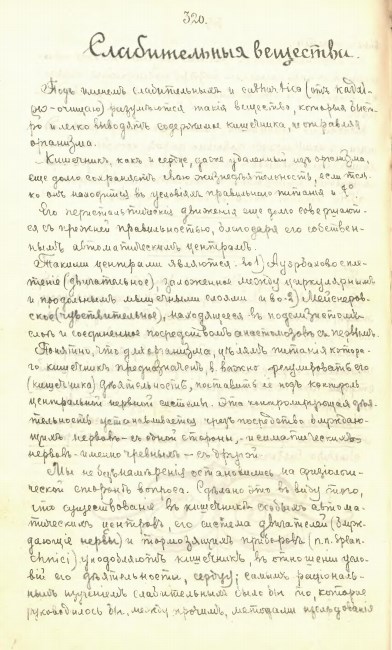 320.
Слабительныя вещества.
Подъ именемъ слабительныхъ и cathartica (отъ καθαί-
ρω - очищаю) разумѣются такія вещества, которыя быст-
ро и легко выводятъ содержимое кишечника, не отравляя
организма.
Кишечникъ, какъ и сердце, даже удаленный изъ организма,
еще долго сохраняетъ свою жизнедѣятельность, если толь
ко онъ находится въ условіяхъ правильнаго питанія и t°.
Его перистальтическія движенія еще долго совершают-
ся съ прежней правильностью, благодаря его собствен-
нымъ автоматическимъ центрамъ.
Такими центрами являются: во 1) Ауэрбахово спле-
теніе (двигательное), заложенное между циркулярнымъ
и продольнымъ мышечными слоями и во-2) Мейснеров-
ское (чувствительное), находящееся въ подслизистомъ
слоѣ и соединенное посредствомъ анастомозовъ съ первымъ.
Понятно, что для организма, цѣлямъ питанія которо-
го кишечникъ предназначенъ, важно регулировать его
(кишечника) дѣятельность, поставить ее подъ контроль
центральной нервной системы. Эта контролирующая дѣя-
тельность устанавливается чрезъ посредство блуждаю-
щихъ нервовъ - съ одной стороны, и симпатическихъ
нервовъ - именно чревныхъ - съ другой.
Мы не безъ намѣренія остановились на физіологи-
ческой сторонѣ вопроса. Сдѣлано это въ виду того,
что существованіе въ кишечникѣ особыхъ автома-
тическихъ центровъ, его система двигателей (блуж-
дающіе нервы) и тормозящихъ приборовъ (n.n. splan-
chnici) уподобляютъ кишечникъ, въ отношеніи усло-
вій его дѣятельности, сердцу; самымъ раціональ-
нымъ изученіемъ слабительныхъ было бы то, которое
руководилось бы, между прочимъ, методами изслѣдованія